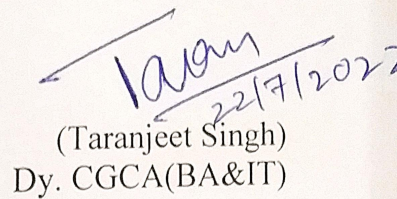 Taran
22/7/2022
(Taranjeet Singh)
Dy. CGCA(BA&IT)